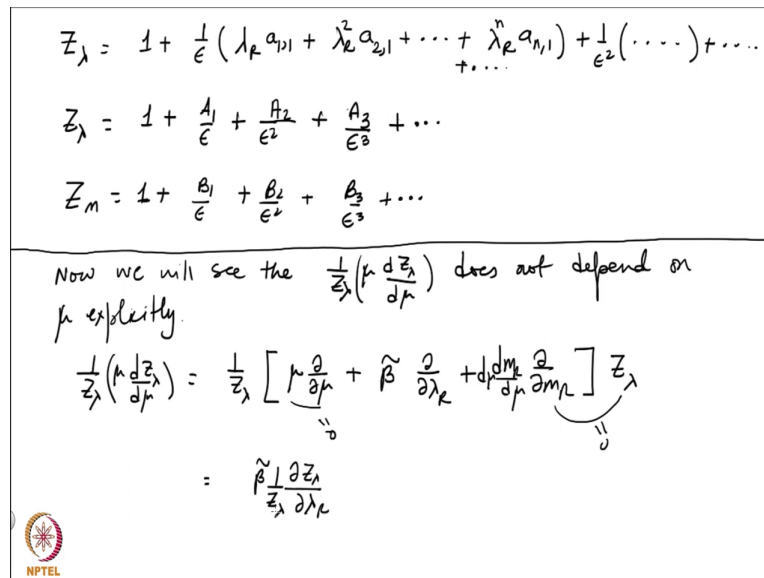 Z_λ = 1 + 1/ε (λ_R a_{1,1} + λ_R^2 a_{2,1} + ··· + λ_R^n a_{n,1}) + 1/ε^2 (····) + ····
+····
Z_λ = 1 + A_1/ε + A_2/ε^2 + A_3/ε^3 + ···
Z_m = 1 + B_1/ε + B_2/ε^2 + B_3/ε^3 + ···
Now we will see the 1/Z_λ (μ dZ_λ/dμ) does not depend on
μ explicitly.
1/Z_λ (μ dZ_λ/dμ) = 1/Z_λ [ μ ∂/∂μ + β̃ ∂/∂λ_R + dμ dm_R/dμ ∂/∂m_R ] Z_λ
=0 =0
= β̃ 1/Z_λ ∂Z_λ/∂λ_R
NPTEL